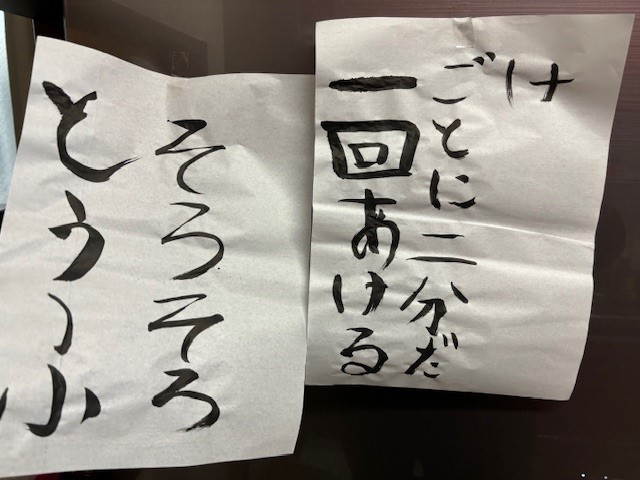 とうふ
そろそろ
一回あける
ごとに二分だ
け